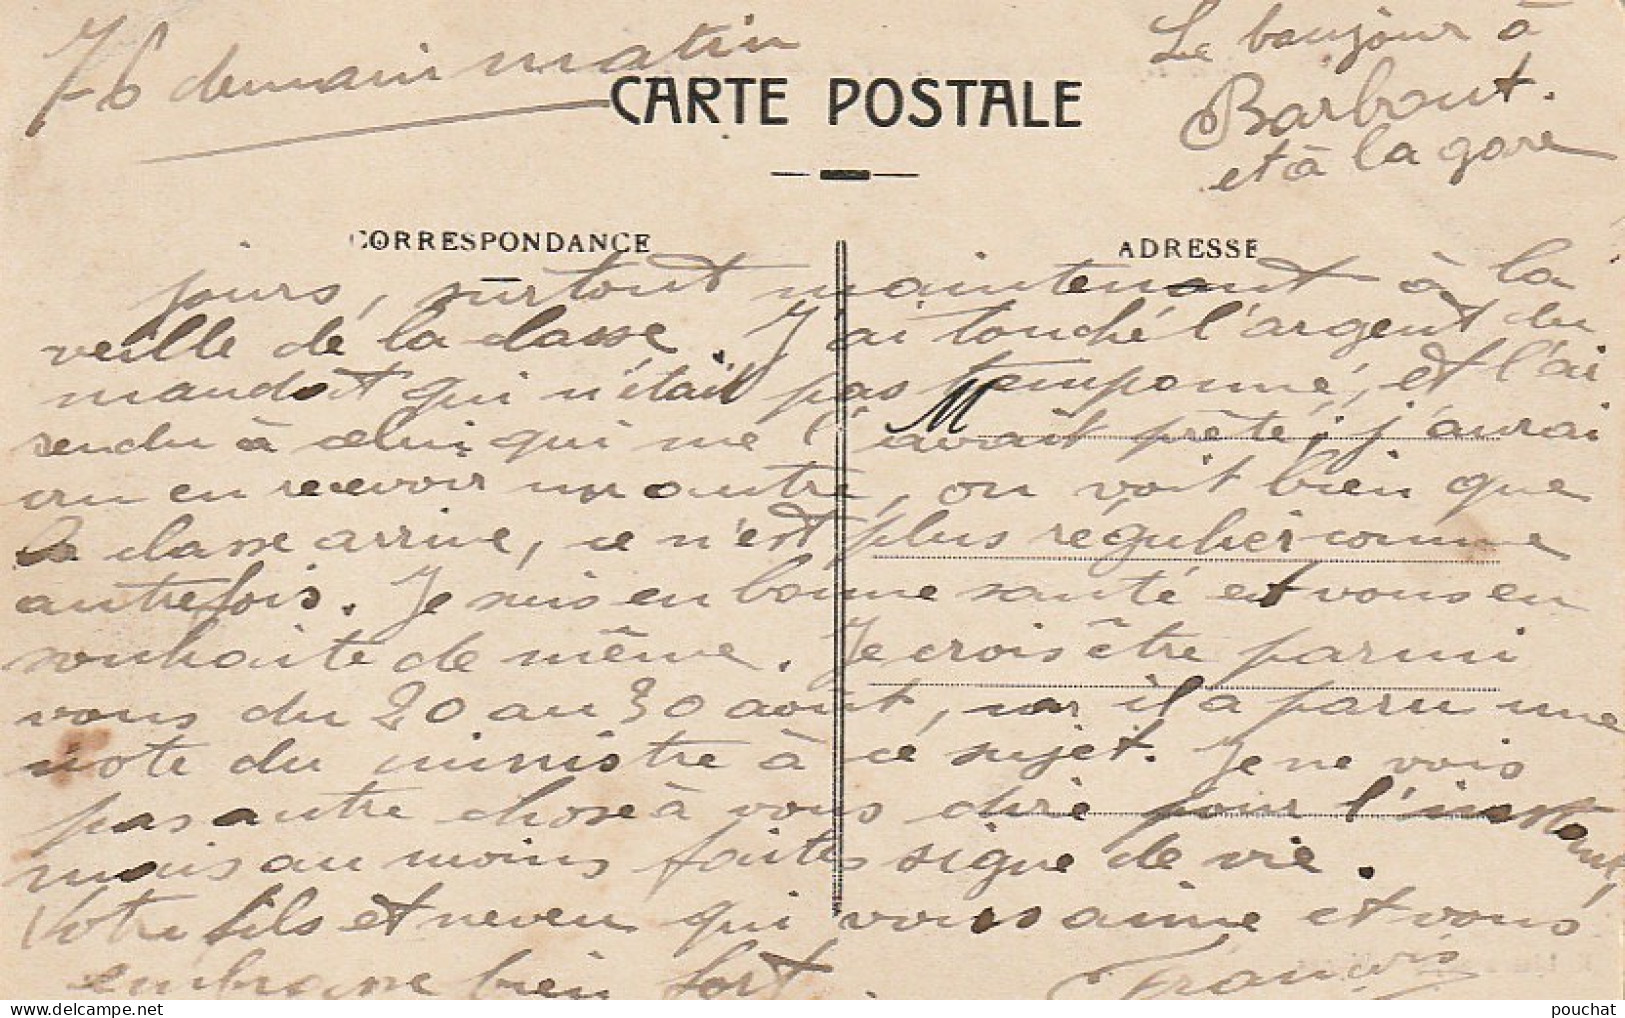 76 demain matin
Le bonjour à
Barbout.
et à la gare
CARTE POSTALE
CORRESPONDANCE
ADRESSE
jours, surtout maintenant à la
veille de la classe. J'ai touché l'argent du
mandat qui n'était pas tamponné, et l'ai
rendu à celui qui me l'avait prêté; j'aurai
M
cru en recevoir un autre, on voit bien que
la classe arrive, ce n'est plus régulier comme
autrefois. Je suis en bonne santé et vous en
souhaite de même. Je crois être parmi
vous du 20 au 30 août, car il a paru une
note du ministre à ce sujet. Je ne vois
pas autre chose à vous dire pour l'instant,
mais au moins faites signe de vie.
Votre fils et neveu qui vous aime et vous
embrasse bien fort.
François
pouchat